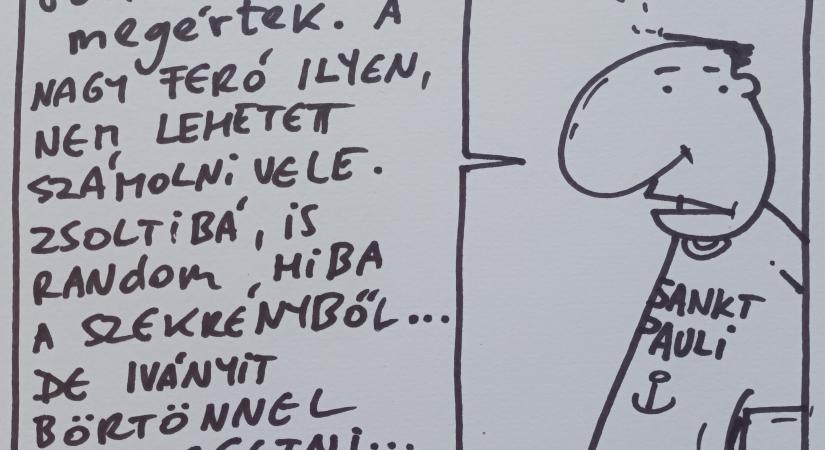 megértek. A
NAGY FERÓ ILYEN,
NEM LEHETETT
SZÁMOLNI VELE.
ZSOLTIBÁ', IS
RANdom HIBA
A SZEKRÉNYBŐL...
DE IVÁNYIT
BÖRTÖNNEL
SANKT
PAULI